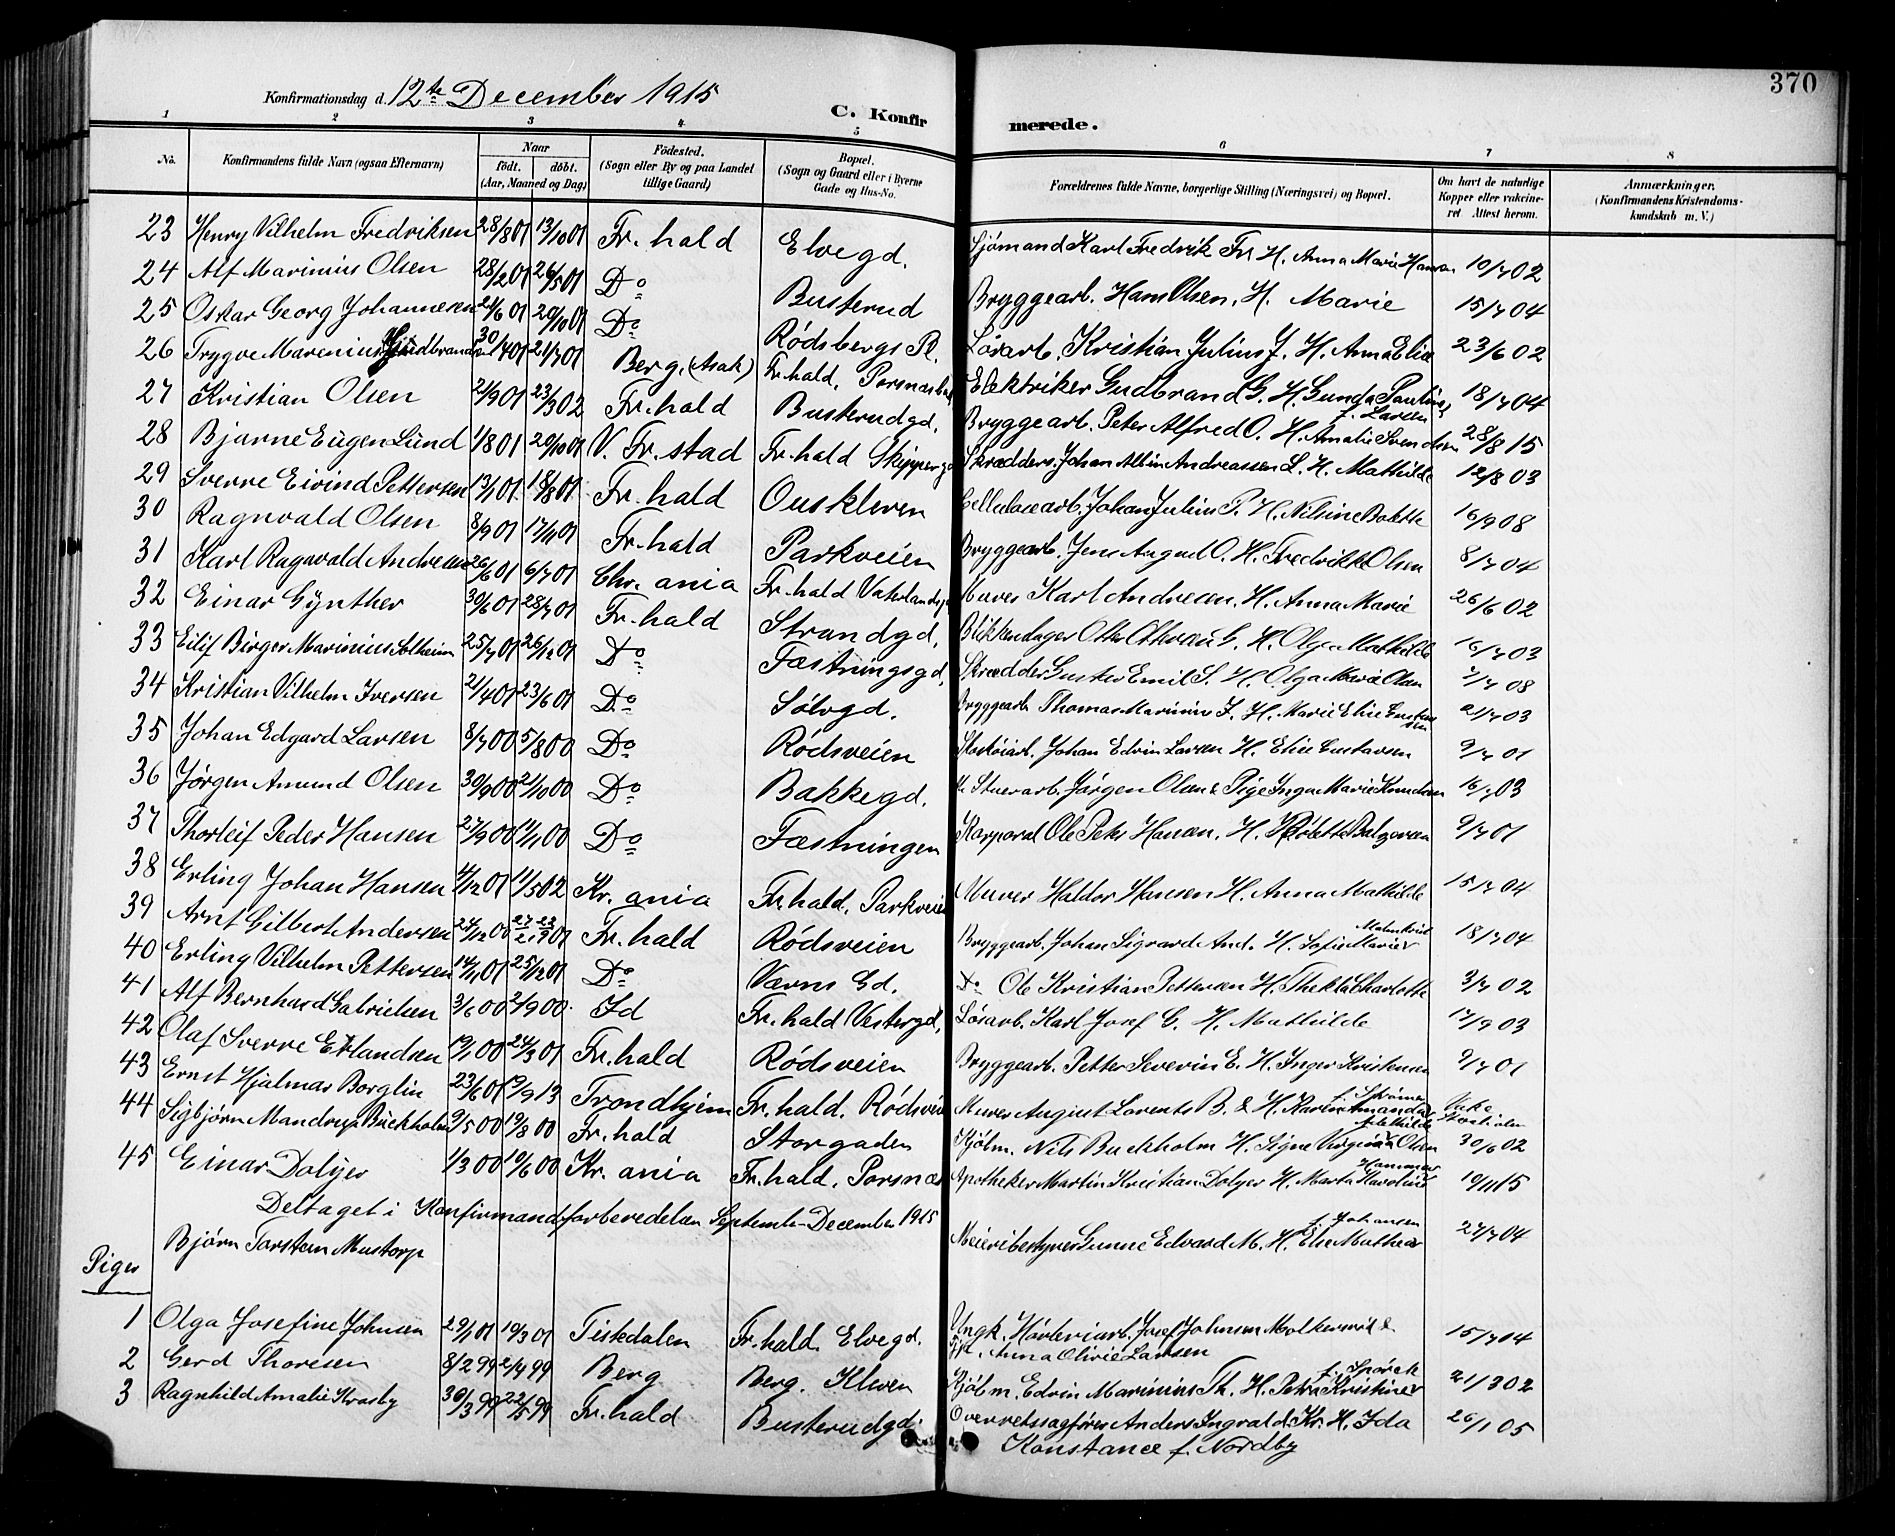 370
Konfirmationsdag d. 12te December 1915
C. Konfirmerede.
1 2 3 4 5 6 7 8
No. Konfirmandens fulde Navn (ogsaa Efternavn) Naar födt. döbt. (Aar, Maaned og Dag) Födested. (Sogn eller By og paa Landet tillige Gaard) Bopæl. (Sogn og Gaard eller i Byerne Gade og Hus-No. Forældrenes fulde Navne, borgerlige Stilling (Næringsvei) og Bopæl. Om havt de naturlige Kopper eller vakcineret Attest herom. Anmærkninger. (Konfirmandens Kristendomskundskab m. V.)
23 Henry Vilhelm Fredriksen 28/8 01 13/10 01 Fr. hald Elvegd. Sjömand Karl Fredrik Fr. H. Anna Marie Hansen 10/7 02
24 Alf Marinius Olsen 28/2 01 26/5 01 Do Busterud Bryggearb. Hans Olsen, H. Marie 15/7 04
25 Oskar Georg Johannesen 24/6 01 20/10 01 Do Rödsbergs Pl. Lösarb. Kristian Julius J. H. Anna Elise 23/6 02
26 Trygve Marenius Gudbrandsen 30/4 01 21/7 01 Berg. (Asak) Fr. hald, Porsnæs Elektriker Gudbrand G. H. Gunda Pauline f. Larsen 18/7 04
27 Kristian Olsen 21/9 01 23/3 02 Fr. hald Busterudgd. Bryggearb. Peter Alfred O. H. Amalie Svendsen 28/8 15
28 Bjarne Eugen Lund 1/8 01 20/10 01 V. Fr. stad Fr. hald Skippergd Skrædders. Johan Albin Andreassen L. H. Mathilde 12/8 03
29 Sverre Eivind Pettersen 13/7 01 18/8 01 Fr. hald Ouskleven Cellulosearb. Johan Julius P. H. Nilsine Bolette 16/9 08
30 Ragnvald Olsen 8/9 01 17/11 01 Fr. hald Parkveien Bryggearb. Jens August O. H. Fredrikke Olsen 8/7 04
31 Karl Ragnvald Andresen 26/6 01 6/7 01 Chr. ania Fr. hald Vaterlandsgd Murer Karl Andresen. H. Anna Marie 26/6 02
32 Einar Gynther 30/6 01 28/7 01 Fr. hald Strandgd. Blikkenslager Otto G. H. Olga Mathilde 16/7 03
33 Eilif Birger Marinius Solheim 25/7 01 26/12 01 Do Fæstningsgd. Skrædder Gustav Emil S. H. Olga Marie Olsen 2/7 08
34 Kristian Vilhelm Iversen 21/4 01 23/6 01 Do Sölvgd. Bryggearb. Thomas Marinius I. H. Marie Elise Gustavsen 21/7 03
35 Johan Edgard Larsen 8/7 00 5/8 00 Do Rödsveien Johan Edvin Larsen H. Elise Gustavsen 9/7 01
36 Jörgen Amund Olsen 30/9 00 21/10 00 Do Bakkegd. Stuerarb. Jörgen Olsen & Pige Inga Marie Knudsen 16/7 03
37 Thorleif Peder Hansen 27/9 00 11/11 00 Do Fæstningen Korporal Ole Peter Hansen. H. 9/7 01
38 Erling Johan Hansen 4/12 01 11/5 02 Kr. ania Fr. hald. Parkveien Murer Haldor Hansen H. Anna Mathilde 15/7 04
39 Arnt Gilbert Andersen 24/12 00 22/9 01 Fr. hald Rödsveien Bryggearb. Johan Sigvard And. H. Sofie Marie f. Malmkvist 18/7 04
40 Erling Vilhelm Pettersen 14/11 01 25/12 01 Do Værns Gd. Do Ole Kristian Pettersen H. Thekla Charlotte 3/7 02
41 Alf Bernhard Gabrielsen 3/6 00 2/9 00 Id Fr. hald Vestergd. Lösarb. Karl Josef G. H. Mathilde 17/9 03
42 Olaf Sverre Erlandsen 19/11 00 24/3 01 Fr. hald Rödsveien Bryggearb. Petter Severin E. H. Inger Kristensen 9/7 01
43 Ernst Hjalmar Borglin 23/6 01 19/9 13 Trondhjem Fr. hald. Rödsveien Murer August Lorents B. & H. Karin Amanda f. Ström
44 Sigbjörn Mandrup Buckholm 9/5 00 19/8 00 Fr. hald Storgaden Kjölm. Nils Buckholm H. Signe Virginia Mathilde Olsen 30/6 02
45 Einar Dolger 1/3 00 10/6 00 Kr. ania Fr. hald. Porsnæs Apotheker Martin Kristian Dolger H. Marta Karoline Hammer 19/11 15
Deltaget i Konfirmandforberedelsen September-December 1915
Björn Torstein Mustorp Meieribestyrer Gunne Edvard M. H. Elise Mathea f. Johansen 27/7 04
Piger
1 Olga Josefine Johnsen 29/1 01 10/3 01 Tistedalen Fr. hald. Elvegd. Ungk. Hövleriarb. Josef Johnsen Molkersröd & Pige Anna Olivie Larsen 15/7 04
2 Gerd Thoresen 8/2 99 2/4 99 Berg Berg. Kleven Kjöbm. Edvin Marinius Th. H. Petra Kristine f. Spörck 21/3 02
3 Ragnhild Amalie Krosby 30/3 99 22/5 99 Fr. hald Busterudgd. Overretssagförer Anders Ingvald Kr. H. Ida Konstance f. Nordby 26/1 05